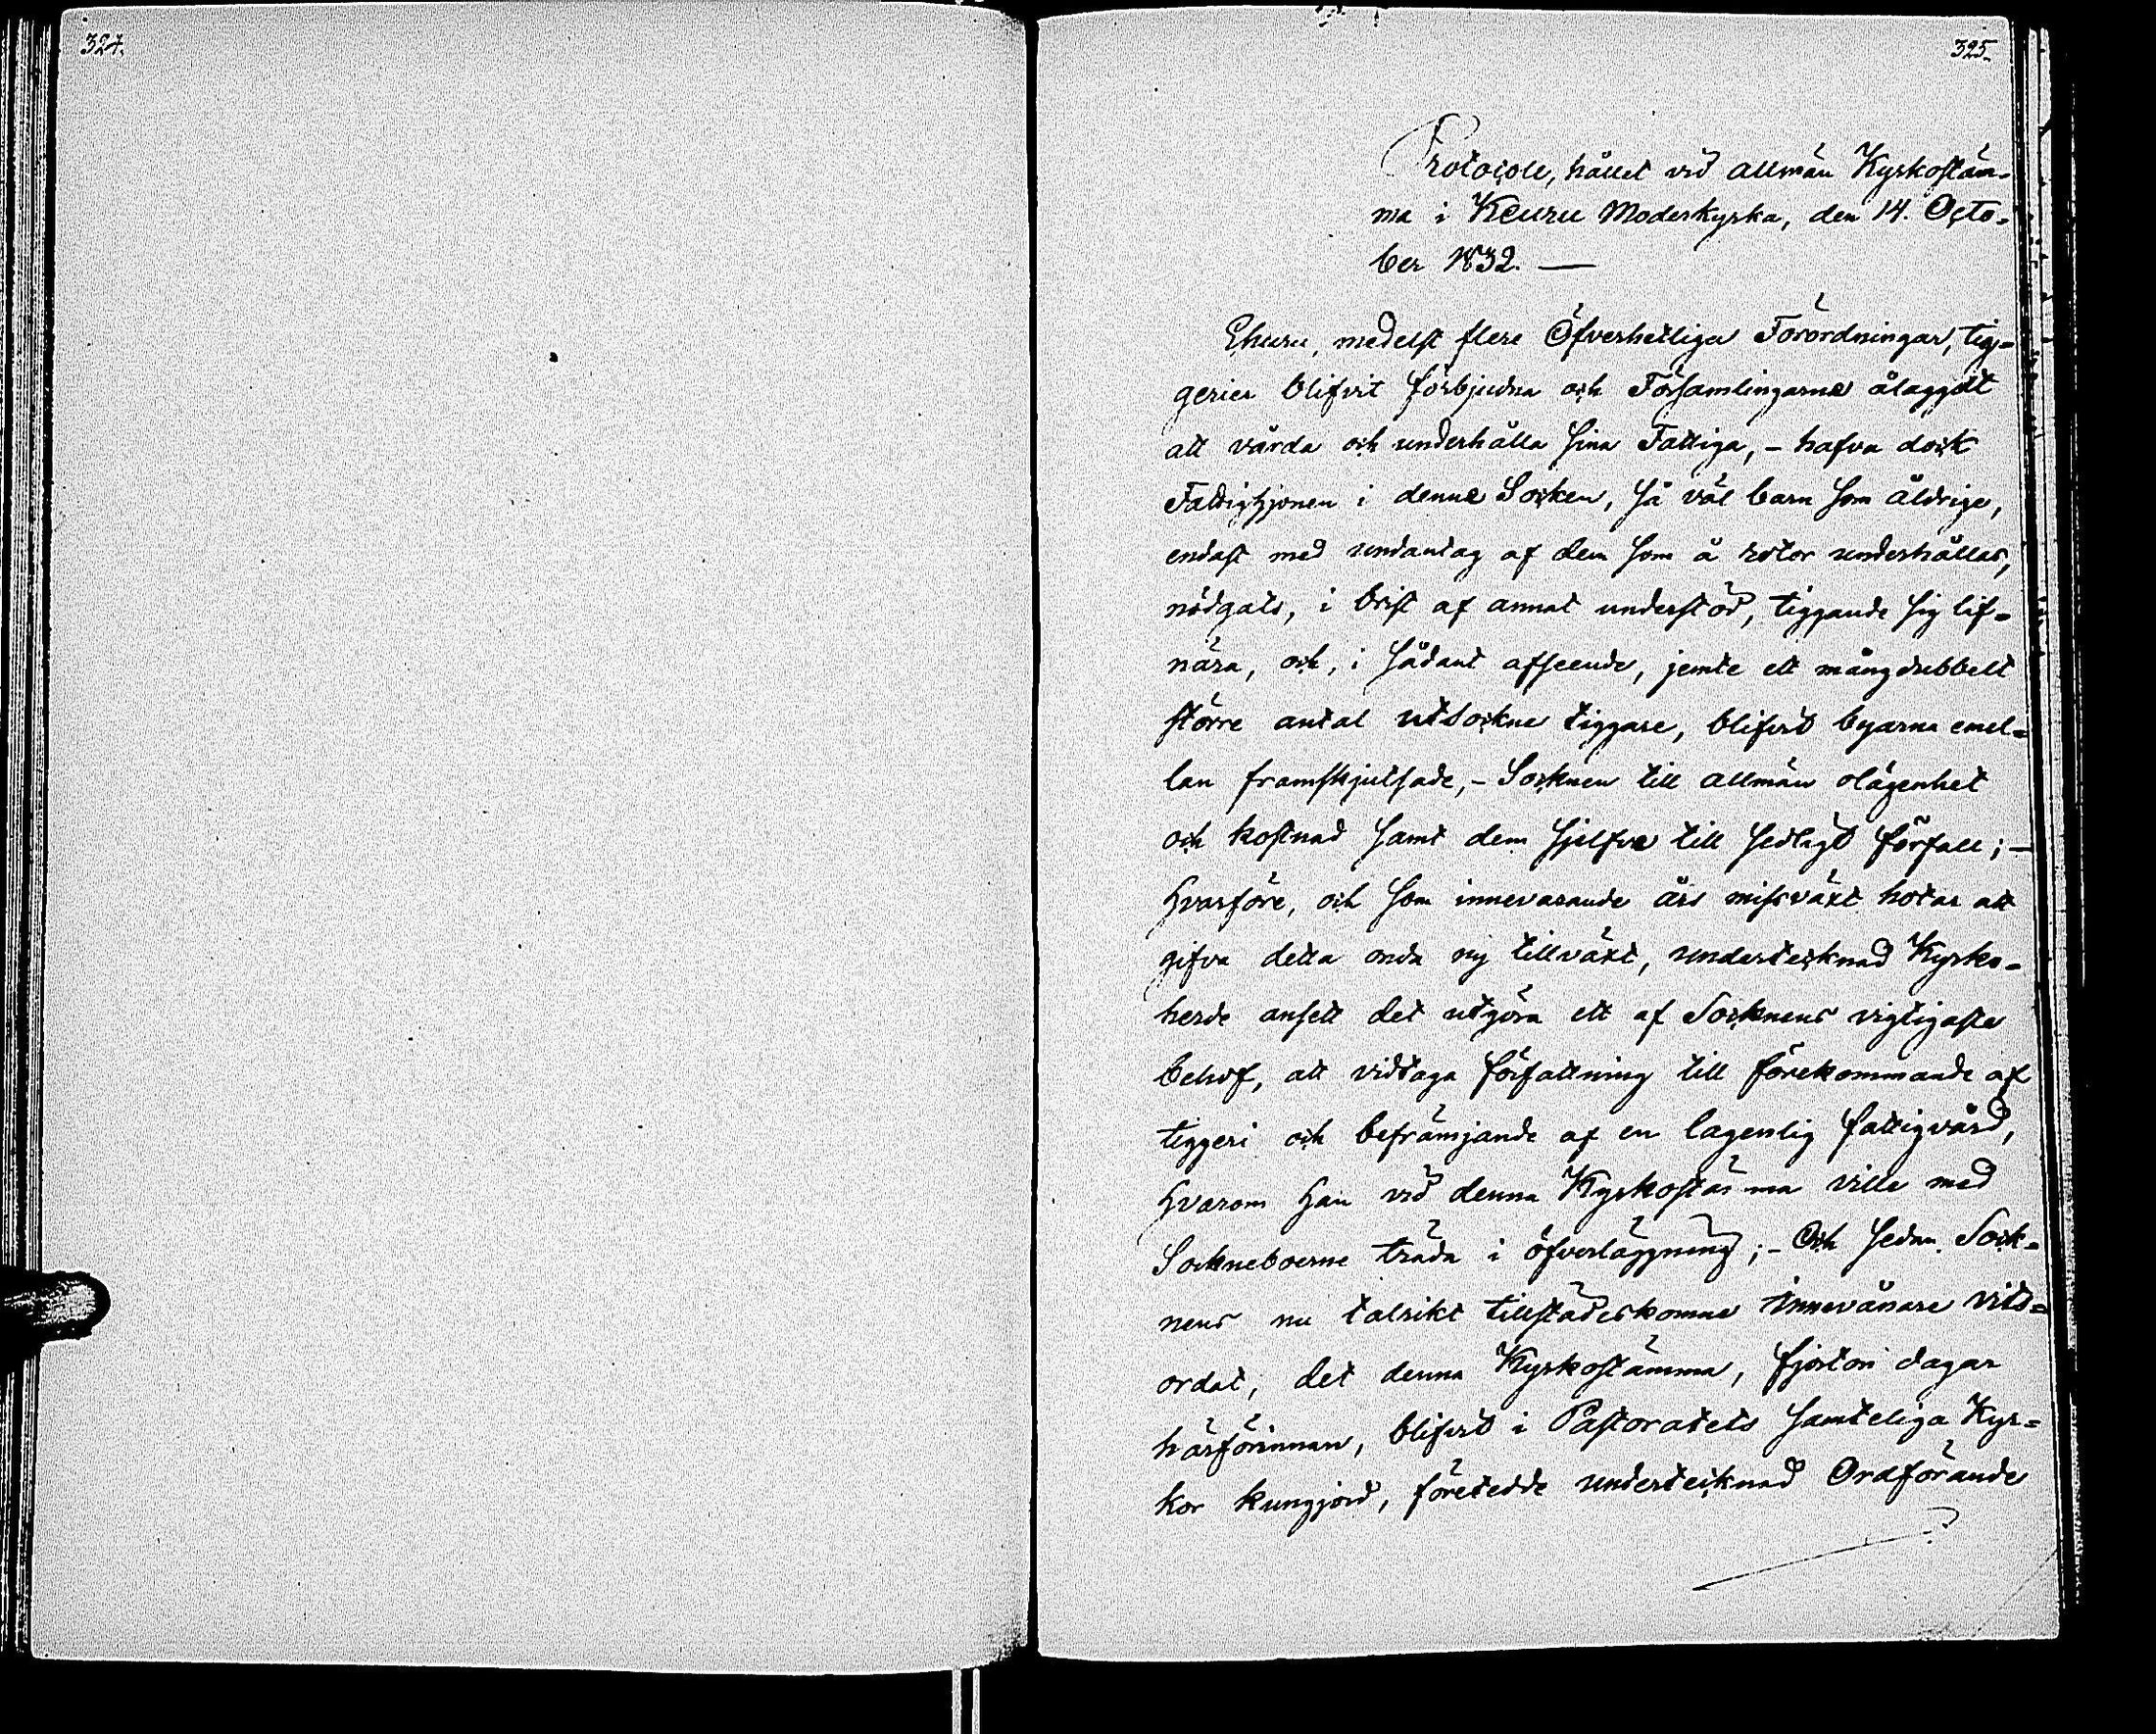 324.
325.
Protocoll, hållet vid allmän Kyrkostäm-
ma i Keuru Moderkyrka, den 14. Octo-
ber 1832. —
Ehuru, medelst flere Öfverhetliga Förordningar, tig-
gerier blifvit förbjudna och Församlingarne ålaggdt
att vårda och underhålla sina Fattiga, - hafva dock
Fattighjonen i denna Socken, så väl barn som åldrige,
endast med undantag af dem som å rotor underhållas,
nödgats, i brist af annat understöd, tiggande sig lif-
nära, och, i sådant afseende, jemte ett mångdubbelt
större antal utsockne tiggare, blifvit byarna emel-
lan framskjutsade, - Socknen till allmän olägenhet
och kostnad samt dem sjelfva till sedligt förfall; -
hvarföre, och som innevarande års missväxt hotar att
gifva detta onda ny tillväxt, undertecknad Kyrko-
herde ansett det utgöra ett af Socknens vigtigaste
behof, att vidtaga författning till förekommande af
tiggeri och befrämjande af en lagenlig fattigvård,
hvarom han vid denna Kyrkostämma ville med
Sockneboerne träda i öfverläggning; - Och sedan Sock-
nens nu talrikt tillstädeskomna Innevånare vits-
ordat, det denna Kyrkostämma, fjorton dagar
härförinnan, blifvit i Pastoratets samteliga Kyr-
kor kungjord, företedde undertecknad Ordförande